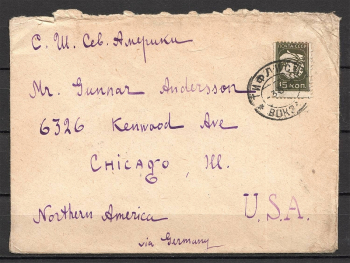 С. Ш. Сев. Америки
ПОЧТА СССР
15 КОП.
ТИФЛИС
ВОКЗ.
Mr. Gunnar Andersson
6326 Kenwood Ave
Chicago, Ill.
Northern America
U.S.A.
via Germany